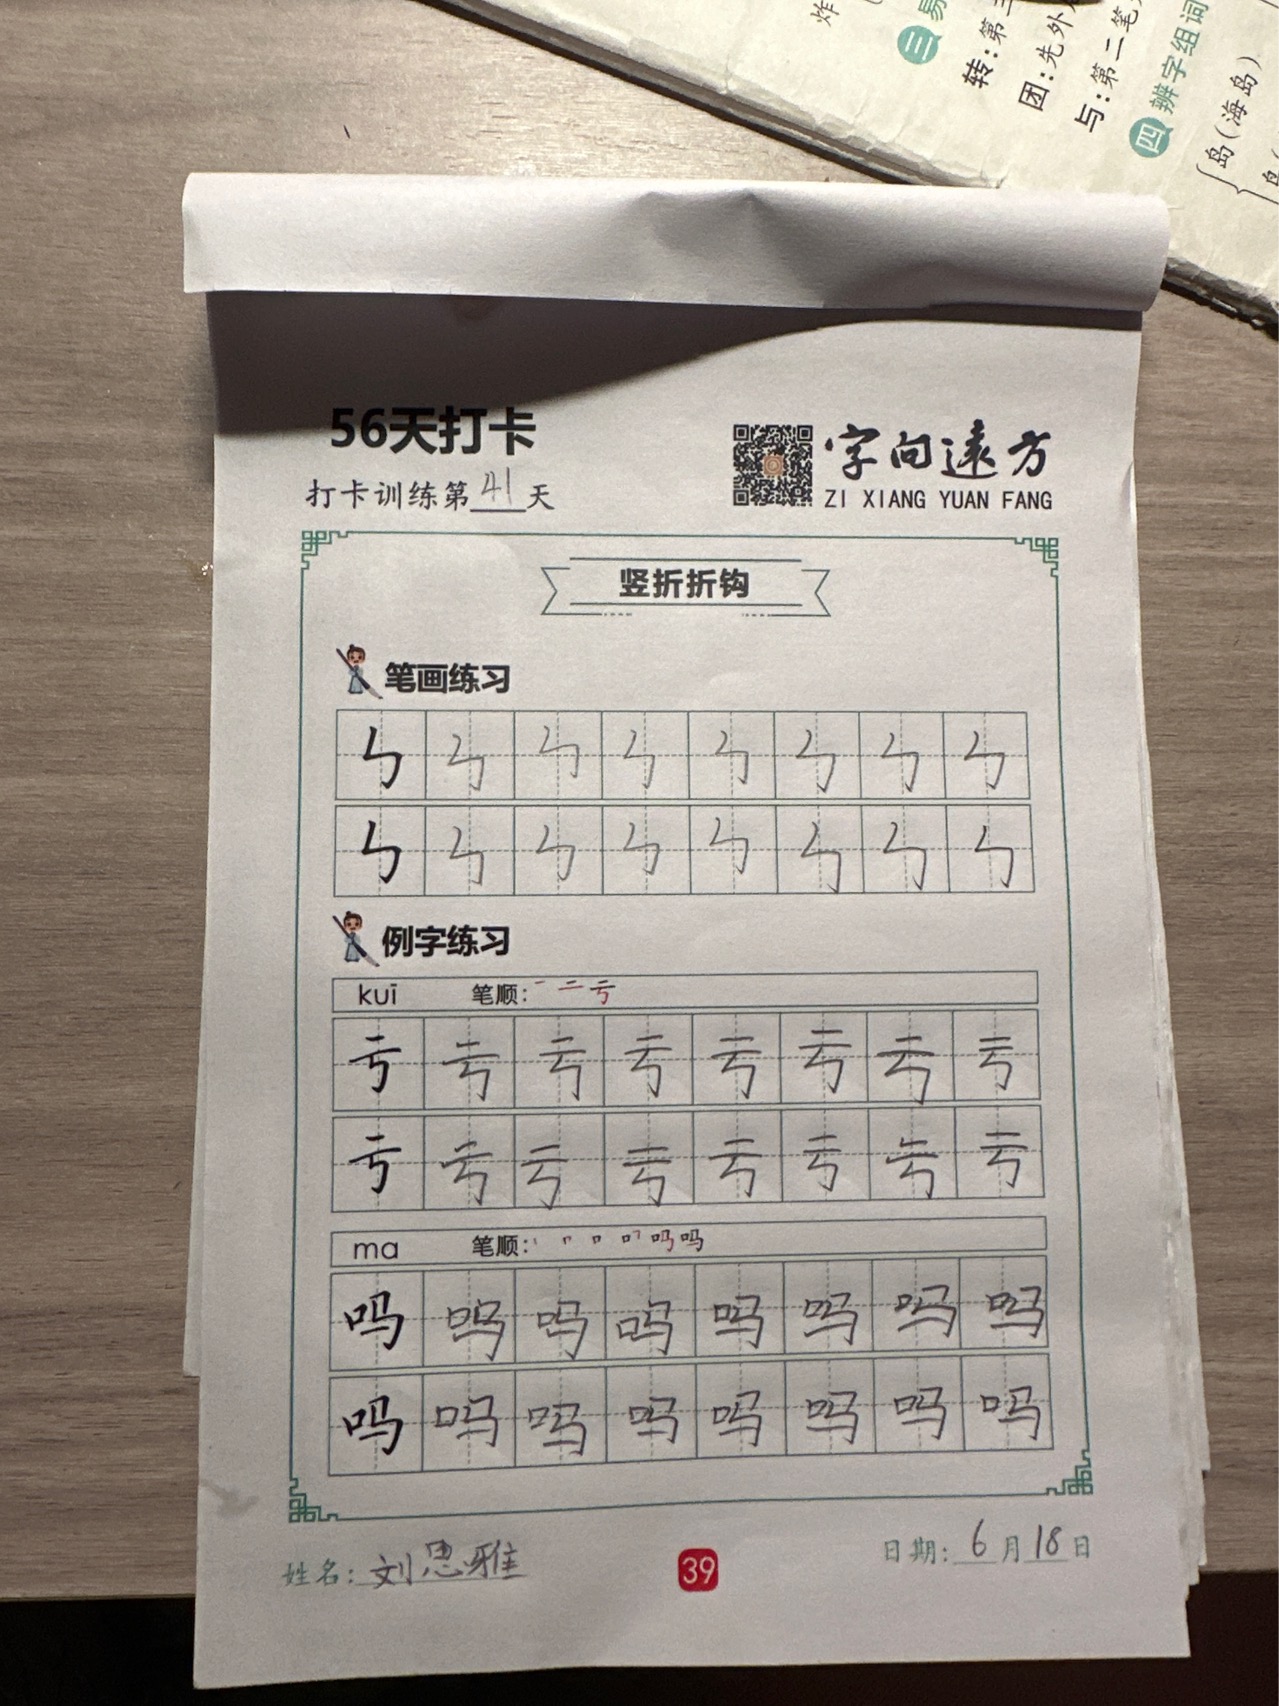 炸
三 易
转：第三
团：先外
与：第二笔
四 辨字组词
岛（海岛）
56天打卡
打卡训练第41天
字向遠方
ZI XIANG YUAN FANG
竖折折钩
笔画练习
ㄣ ㄣ ㄣ ㄣ ㄣ ㄣ ㄣ ㄣ
ㄣ ㄣ ㄣ ㄣ ㄣ ㄣ ㄣ ㄣ
例字练习
kuī 笔顺：一 二 亏
亏 亏 亏 亏 亏 亏 亏 亏
亏 亏 亏 亏 亏 亏 亏 亏
ma 笔顺：丨 口 吗 吗
吗 吗 吗 吗 吗 吗 吗 吗
吗 吗 吗 吗 吗 吗 吗 吗
姓名：刘思雅
39
日期：6月18日